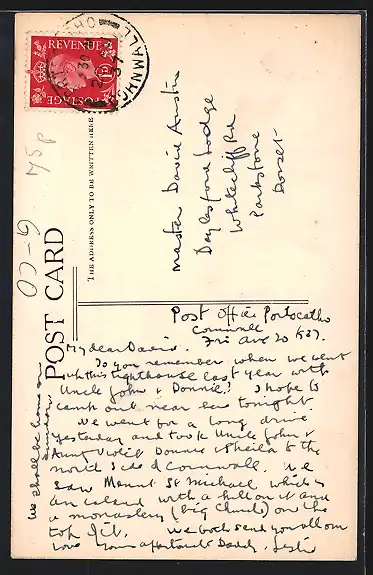 REVENUE
POSTAGE
CORNWALL
75p
POST CARD
THE ADDRESS ONLY TO BE WRITTEN HERE
Master David Austin
Daylesford Lodge
Whitecliff Rd
Parkstone
Dorset
Post Office Portscatho
Cornwall
Fri Aug 20 1937.
My dear David.
Do you remember when we went
up this lighthouse last year with
Uncle John & Donnie? I hope to
camp out near here tonight.
We went for a long drive
yesterday and took Uncle John &
Aunt Donnie & Sheila to the
north side of Cornwall. We
saw Mount St Michael which is
an island with a hill on it and
a monastery (big church) on the
top of it. We both send you all our
love Your affectionate Daddy, Leslie
We shall be home on
Sunday